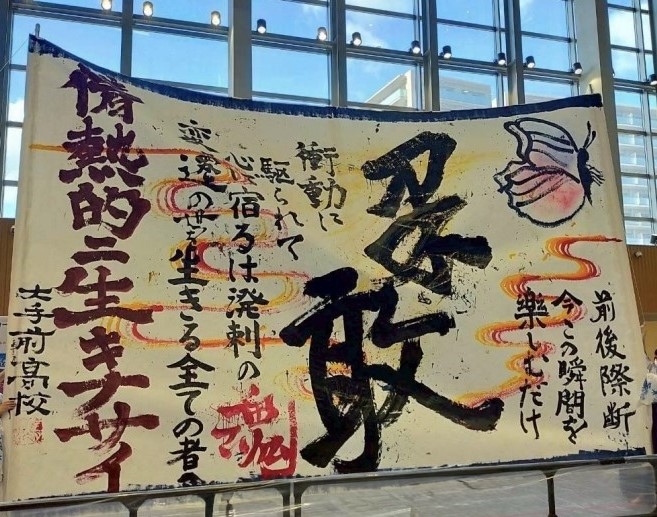 前後際断
今この瞬間を
楽しむだけ
敢
衝動に
駆られて
心宿るは溌剌の魂
変遷の世を生きる全ての者
情熱的ニ生キナサイ
太宰府高校